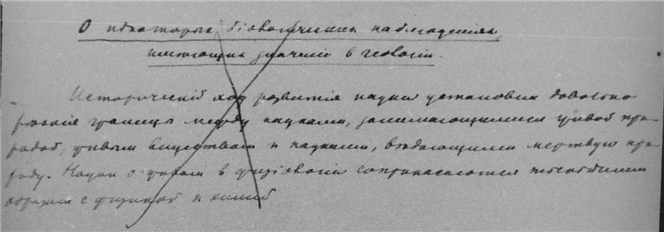 О некоторых біологическихъ наблюденіяхъ,
имѣющихъ значеніе в геологіи.
Историческій ход развитія науки установил довольно
рѣзкія границы между науками, занимающимися живой при-
родой, живым веществом и науками, вѣдающими мертвую при-
роду. Науки о живом в физіологіи соприкасаются
образом с физикой и химіей